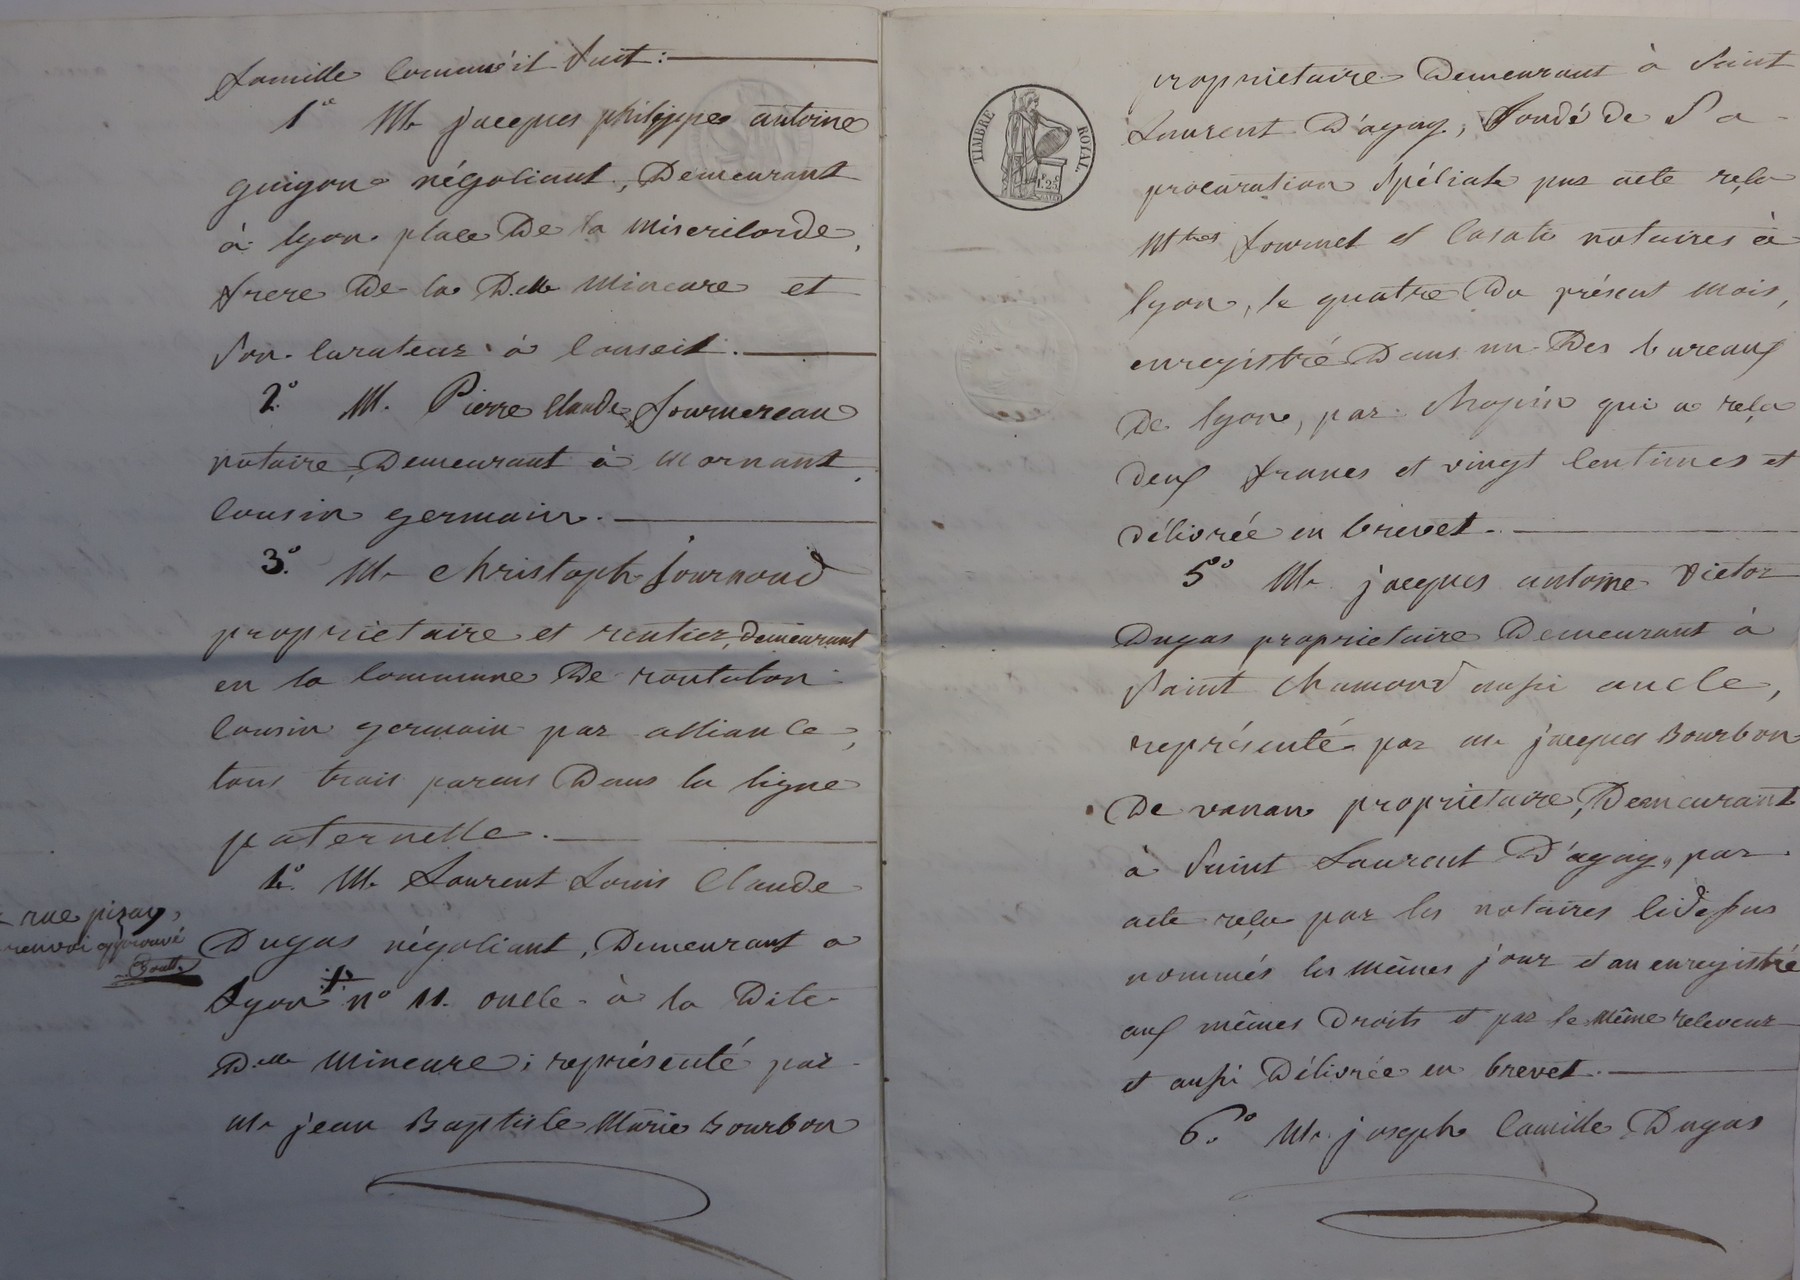 famille comme il suit :
1° Mr jacques philippe antoine
guigon négociant, Demeurant
à lyon place De la Misericorde,
frere De la Delle Mineure et
son curateur à conseil.
2° M. Pierre Claude fournereau
notaire, Demeurant à Mornant,
cousin germain.
3° Mr christophe journoud
proprietaire et rentier, demeurant
en la commune De rontalon
cousin germain par alliance,
tous trois parens Dans la ligne
paternelle.
4° Mr Laurent Louis Claude
Dugas négociant, Demeurant a
Lyon n° 11. oncle à la Dite
Delle Mineure; représenté par
Mr jean Baptiste Marie Bourbon
rue pizay,
renvoi approuvé
proprietaire Demeurant à Saint
Laurent D'agny, fondé de Sa
procuration Spéciale par acte reçu
Mtres fournet et Casati notaires à
lyon, le quatre Du présent mois,
enregistré Dans un Des bureaux
De lyon, par Chopin qui a reçu
deux francs et vingt centimes et
délivrée en brevet.
5° Mr jacques antoine Victor
Dugas proprietaire Demeurant à
Saint Chamond aussi oncle,
représenté par Mr jacques Bourbon
De vanan proprietaire, Demeurant
à Saint Laurent D'agny, par
acte reçu par les notaires cidessus
nommés les mêmes jour et an enregistré
aux mêmes Droits et par le Même receveur
et aussi Délivrée en brevet.
6° Mr joseph Camille Dugas
TIMBRE ROYAL
1f. 25